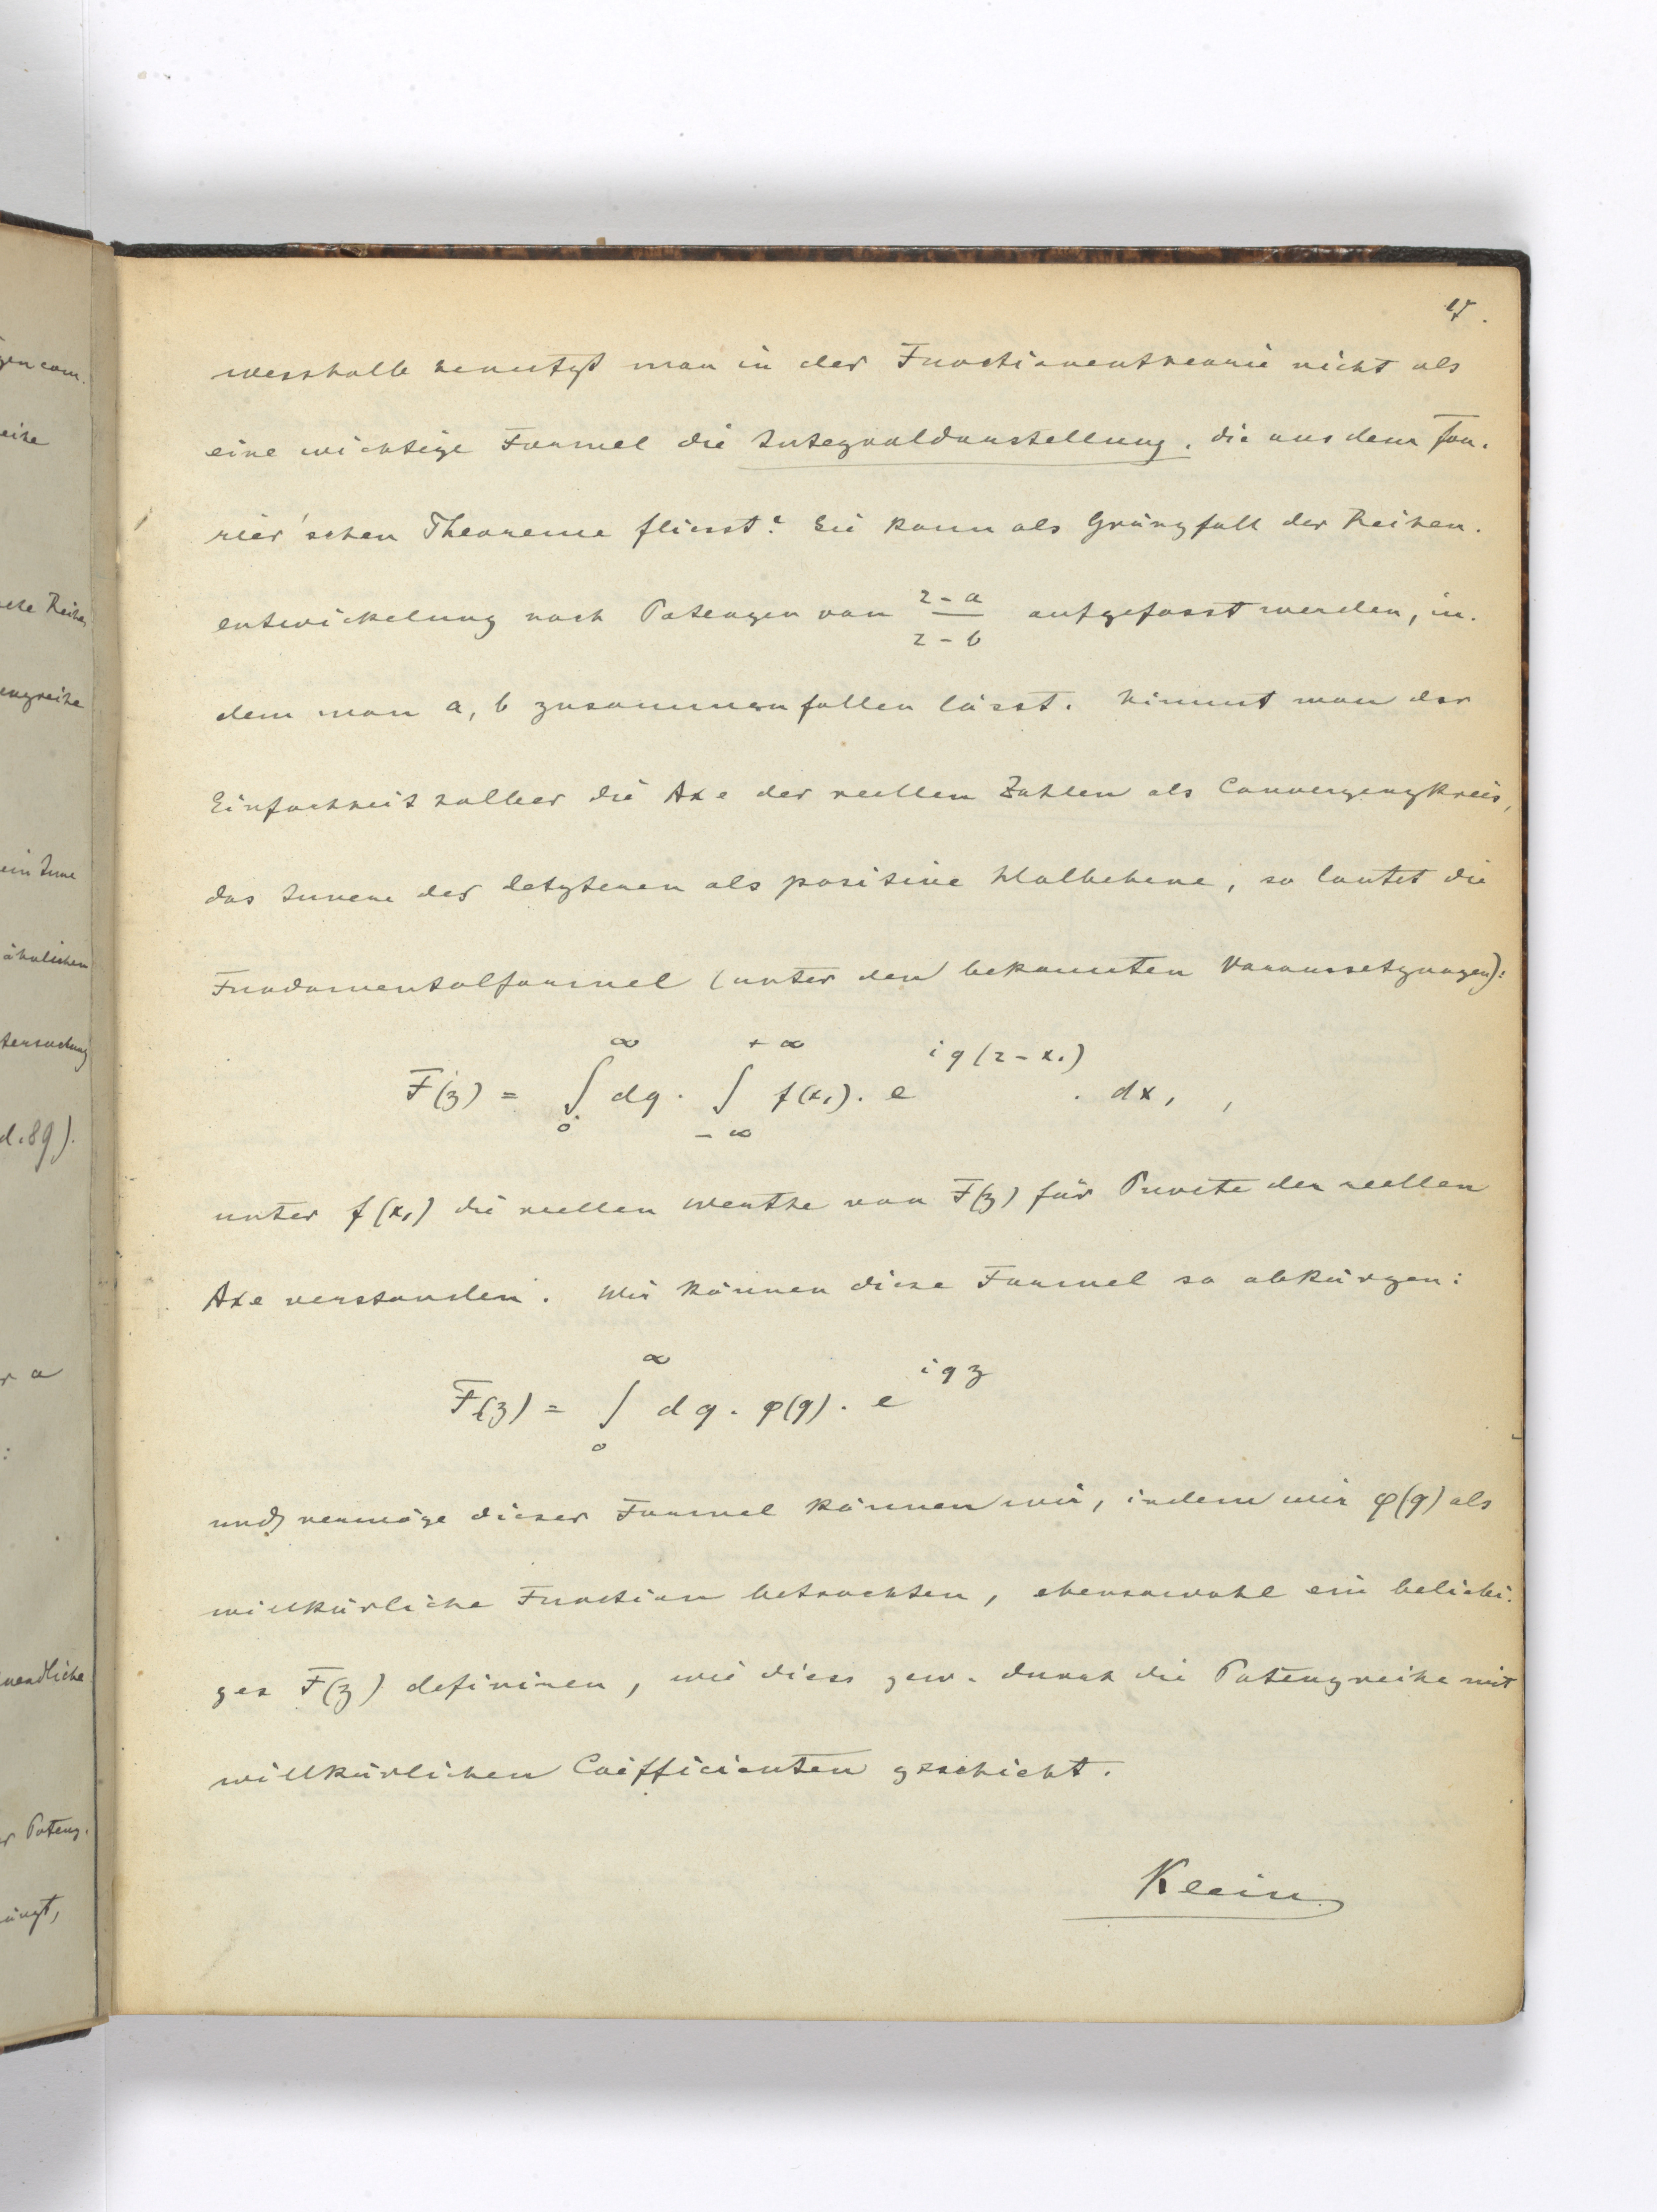 17.
wesshalb benutzt man in der Functionentheorie nicht als
eine wichtige Formel die Integraldarstellung, die aus dem Fou-
rier'schen Theoreme fliesst? Sie kann als Gränzfall der Reihen-
entwickelung nach Potenzen von (z - a)/(z - b) aufgefasst werden, in-
dem man a, b zusammenfallen lässt. Nimmt man der
Einfachheit halber die Axe der reellen Zahlen als Convergenzkreis,
das Innere des letzteren als positive Halbebene, so lautet die
Fundamentalformel (unter den bekannten Voraussetzungen):
F(z) = ∫₀^∞ dq · ∫_{-∞}^{+∞} f(x₁) · e^{iq(z - x₁)} · dx₁,
unter f(x₁) die reellen Werthe von F(z) für Puncte der reellen
Axe verstanden. Wir können diese Formel so abkürzen:
F(z) = ∫₀^∞ dq · φ(q) · e^{iqz}
und vermöge dieser Formel können wir, indem wir φ(q) als
willkürliche Function betrachten, ebensowohl ein beliebi-
ges F(z) definiren, wie diess gew. durch die Potenzreihe mit
willkürlichen Coefficienten geschieht.
Klein